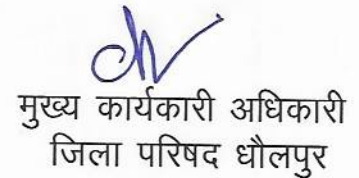 मुख्य कार्यकारी अधिकारी
जिला परिषद धौलपुर